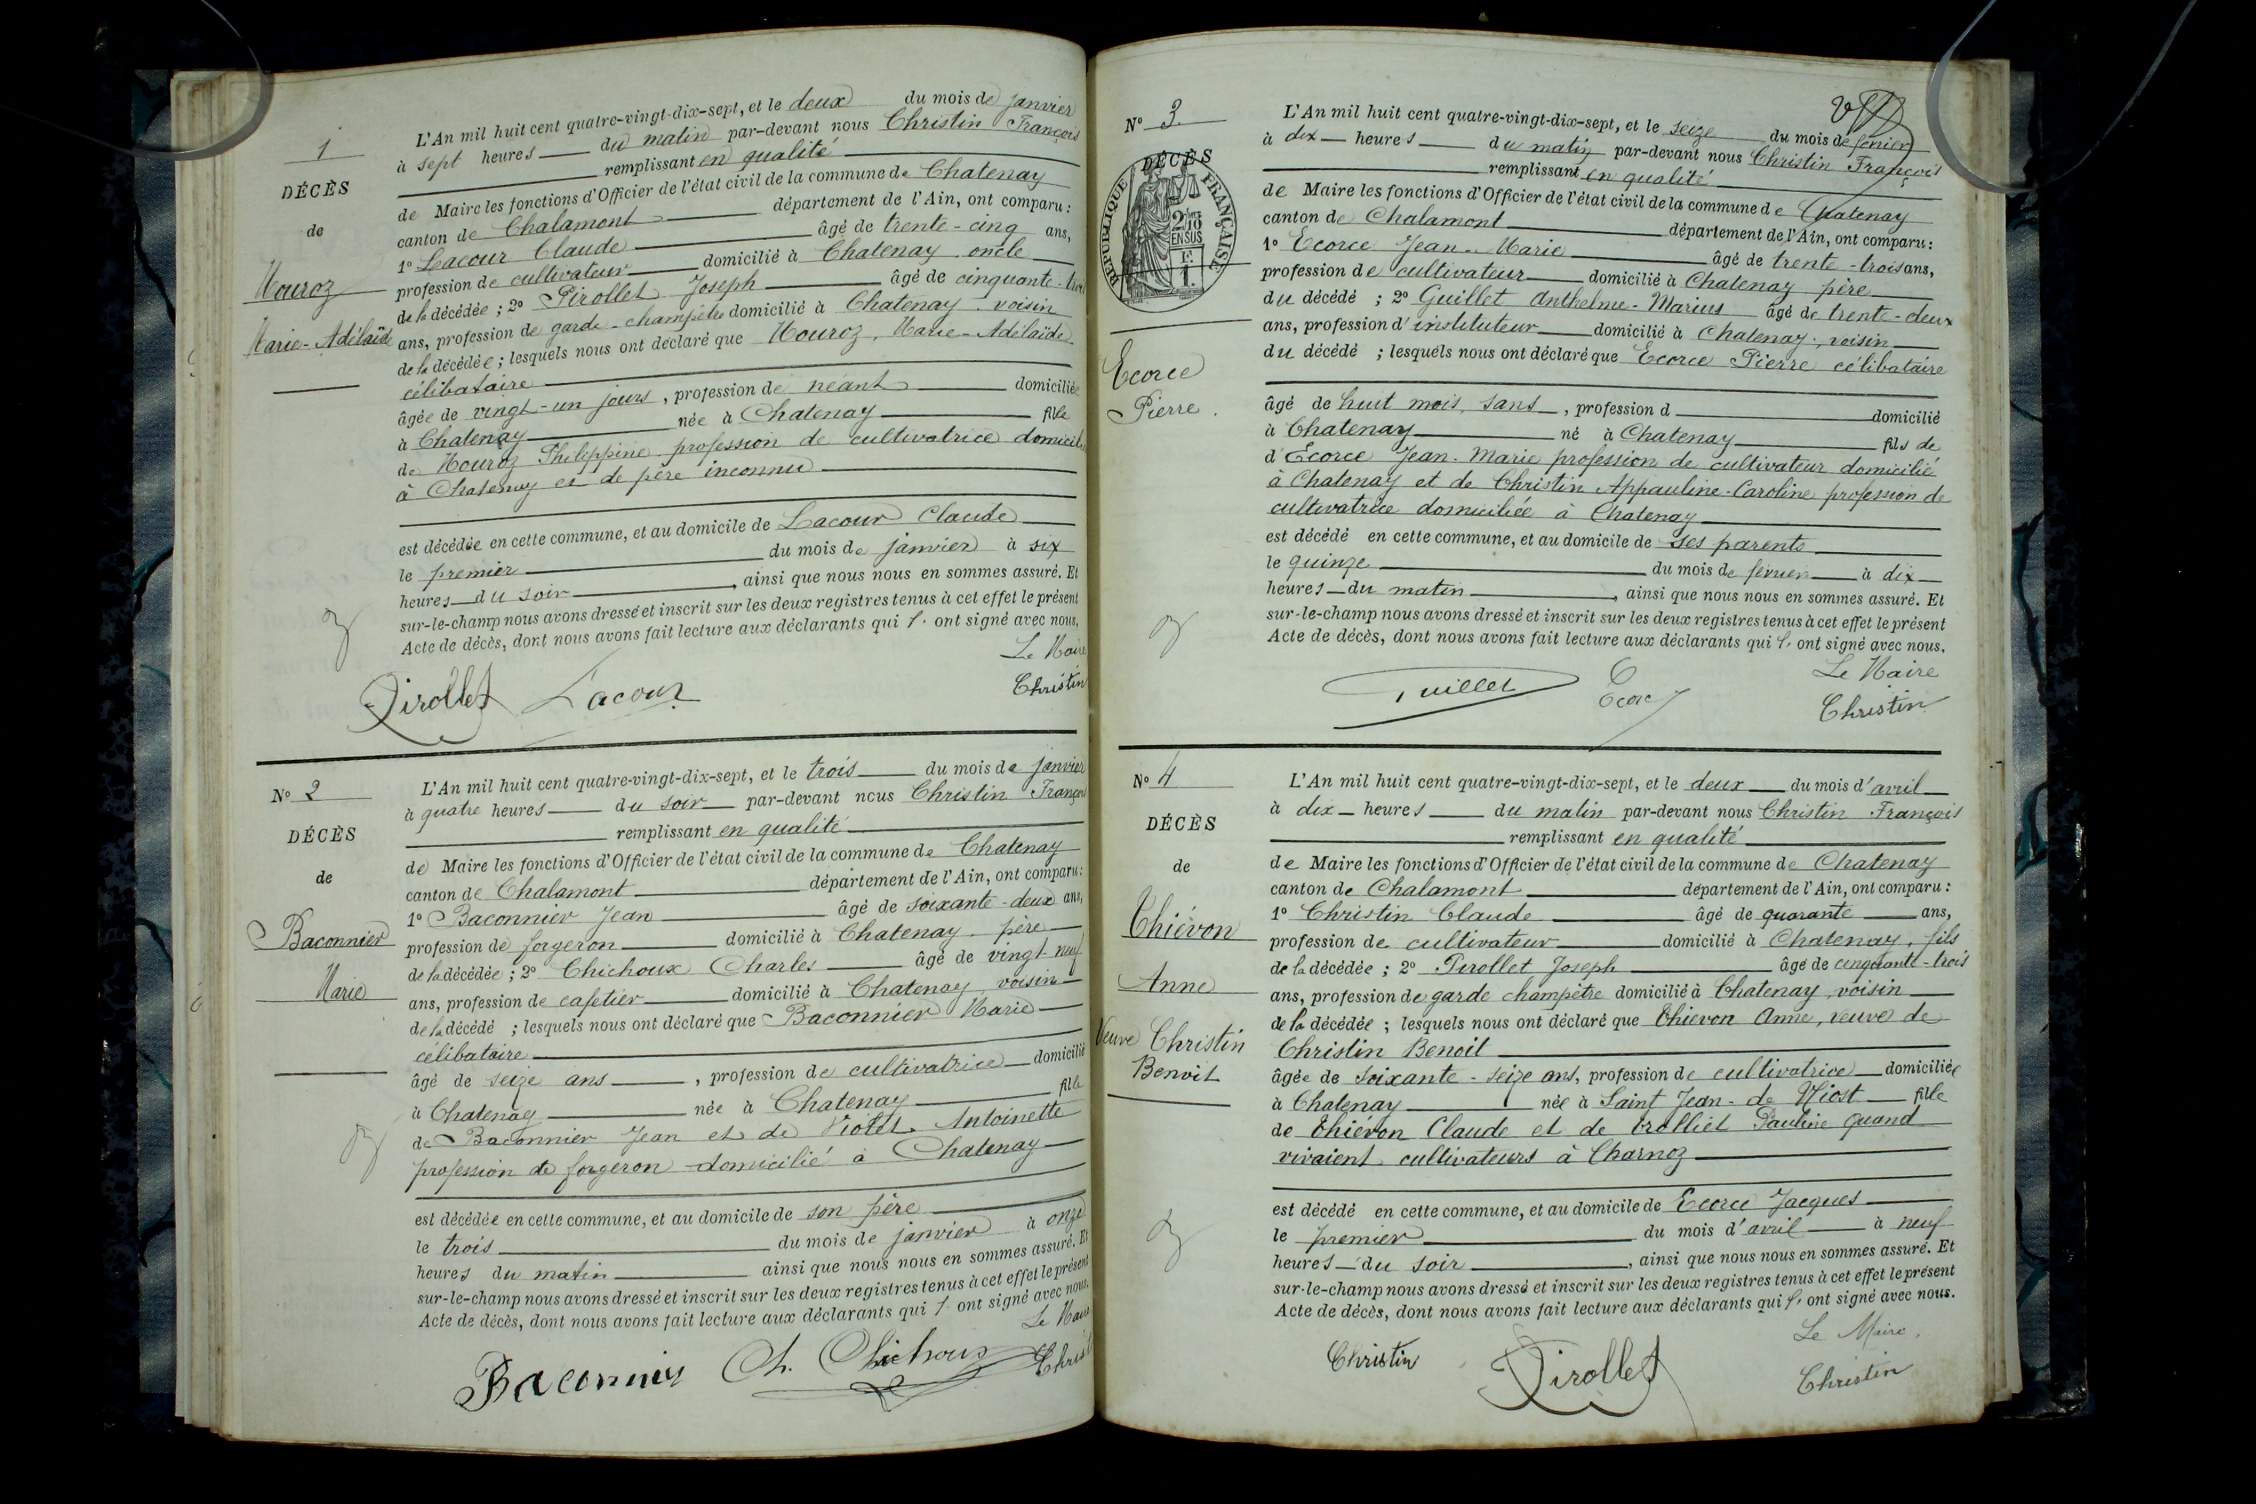 1
DÉCÈS
de
Mouroz
Marie-Adélaïde
L'An mil huit cent quatre-vingt-dix-sept, et le deux du mois de janvier
à sept heures du matin par-devant nous Christin François
remplissant en qualité
de Maire les fonctions d'Officier de l'état civil de la commune de Chatenay
canton de Chalamont département de l'Ain, ont comparu :
1° Lacour Claude âgé de trente-cinq ans,
profession de cultivateur domicilié à Chatenay oncle
de la décédée ; 2° Pirollet Joseph âgé de cinquante-trois
ans, profession de garde-champêtre domicilié à Chatenay voisin
de la décédée ; lesquels nous ont déclaré que Mouroz, Marie-Adélaïde
célibataire
âgée de vingt-un jours, profession de néant domiciliée
à Chatenay née à Chatenay fille
de Mouroz Philippine profession de cultivatrice domiciliée
à Chatenay et de père inconnu
est décédée en cette commune, et au domicile de Lacour Claude
le premier du mois de janvier à six
heures du soir, ainsi que nous nous en sommes assuré. Et
sur-le-champ nous avons dressé et inscrit sur les deux registres tenus à cet effet le présent
Acte de décès, dont nous avons fait lecture aux déclarants qui l' ont signé avec nous.
Le Maire
Pirollet Lacour Christin
N° 2
DÉCÈS
de
Baconnier
Marie
L'An mil huit cent quatre-vingt-dix-sept, et le trois du mois de janvier
à quatre heures du soir par-devant nous Christin François
remplissant en qualité
de Maire les fonctions d'Officier de l'état civil de la commune de Chatenay
canton de Chalamont département de l'Ain, ont comparu :
1° Baconnier Jean âgé de soixante-deux ans,
profession de forgeron domicilié à Chatenay père
de la décédée ; 2° Chichoux Charles âgé de vingt-neuf
ans, profession de cafetier domicilié à Chatenay, voisin
de la décédé ; lesquels nous ont déclaré que Baconnier Marie
célibataire
âgé de seize ans, profession de cultivatrice domicilié
à Chatenay née à Chatenay fille
de Baconnier Jean et de Violet Antoinette
profession de forgeron domicilié à Chatenay
est décédée en cette commune, et au domicile de son père
le trois du mois de janvier à onze
heures du matin ainsi que nous nous en sommes assuré. Et
sur-le-champ nous avons dressé et inscrit sur les deux registres tenus à cet effet le présent
Acte de décès, dont nous avons fait lecture aux déclarants qui l' ont signé avec nous.
Le Maire
Baconnier Ch. Chichoux Christin
N° 3.
DÉCÈS
RÉPUBLIQUE FRANÇAISE
2/10
EN SUS
1 F.
Ecorce
Pierre.
L'An mil huit cent quatre-vingt-dix-sept, et le seize du mois de février
à dix heures du matin par-devant nous Christin François
remplissant en qualité
de Maire les fonctions d'Officier de l'état civil de la commune de Chatenay
canton de Chalamont département de l'Ain, ont comparu :
1° Ecorce Jean-Marie âgé de trente-trois ans,
profession de cultivateur domicilié à Chatenay père
du décédé ; 2° Guillet Anthelme-Marius âgé de trente-deux
ans, profession d'instituteur domicilié à Chatenay, voisin
du décédé ; lesquels nous ont déclaré que Ecorce Pierre célibataire
âgé de huit mois, sans, profession d domicilié
à Chatenay né à Chatenay fils de
d'Ecorce Jean-Marie profession de cultivateur domicilié
à Chatenay et de Christin Appauline-Caroline profession de
cultivatrice domiciliée à Chatenay
est décédé en cette commune, et au domicile de ses parents
le quinze du mois de février à dix
heures du matin, ainsi que nous nous en sommes assuré. Et
sur-le-champ nous avons dressé et inscrit sur les deux registres tenus à cet effet le présent
Acte de décès, dont nous avons fait lecture aux déclarants qui l' ont signé avec nous.
Le Maire
Guillet Ecorce Christin
N° 4
DÉCÈS
de
Thiévon
Anne
Veuve Christin
Benoit
L'An mil huit cent quatre-vingt-dix-sept, et le deux du mois d'avril
à dix heures du matin par-devant nous Christin François
remplissant en qualité
de Maire les fonctions d'Officier de l'état civil de la commune de Chatenay
canton de Chalamont département de l'Ain, ont comparu :
1° Christin Claude âgé de quarante ans,
profession de cultivateur domicilié à Chatenay, fils
de la décédée ; 2° Pirollet Joseph âgé de cinquante-trois
ans, profession de garde champêtre domicilié à Chatenay, voisin
de la décédée ; lesquels nous ont déclaré que Thievon Anne, veuve de
Christin Benoit
âgée de soixante-seize ans, profession de cultivatrice domiciliée
à Chatenay née à Saint Jean-de Niost fille
de Thiévon Claude et de Trolliet Pauline quand
vivaient cultivateurs à Charnoz
est décédé en cette commune, et au domicile de Ecorce Jacques
le premier du mois d'avril à neuf
heures du soir, ainsi que nous nous en sommes assuré. Et
sur-le-champ nous avons dressé et inscrit sur les deux registres tenus à cet effet le présent
Acte de décès, dont nous avons fait lecture aux déclarants qui l' ont signé avec nous.
Le Maire,
Christin Pirollet Christin